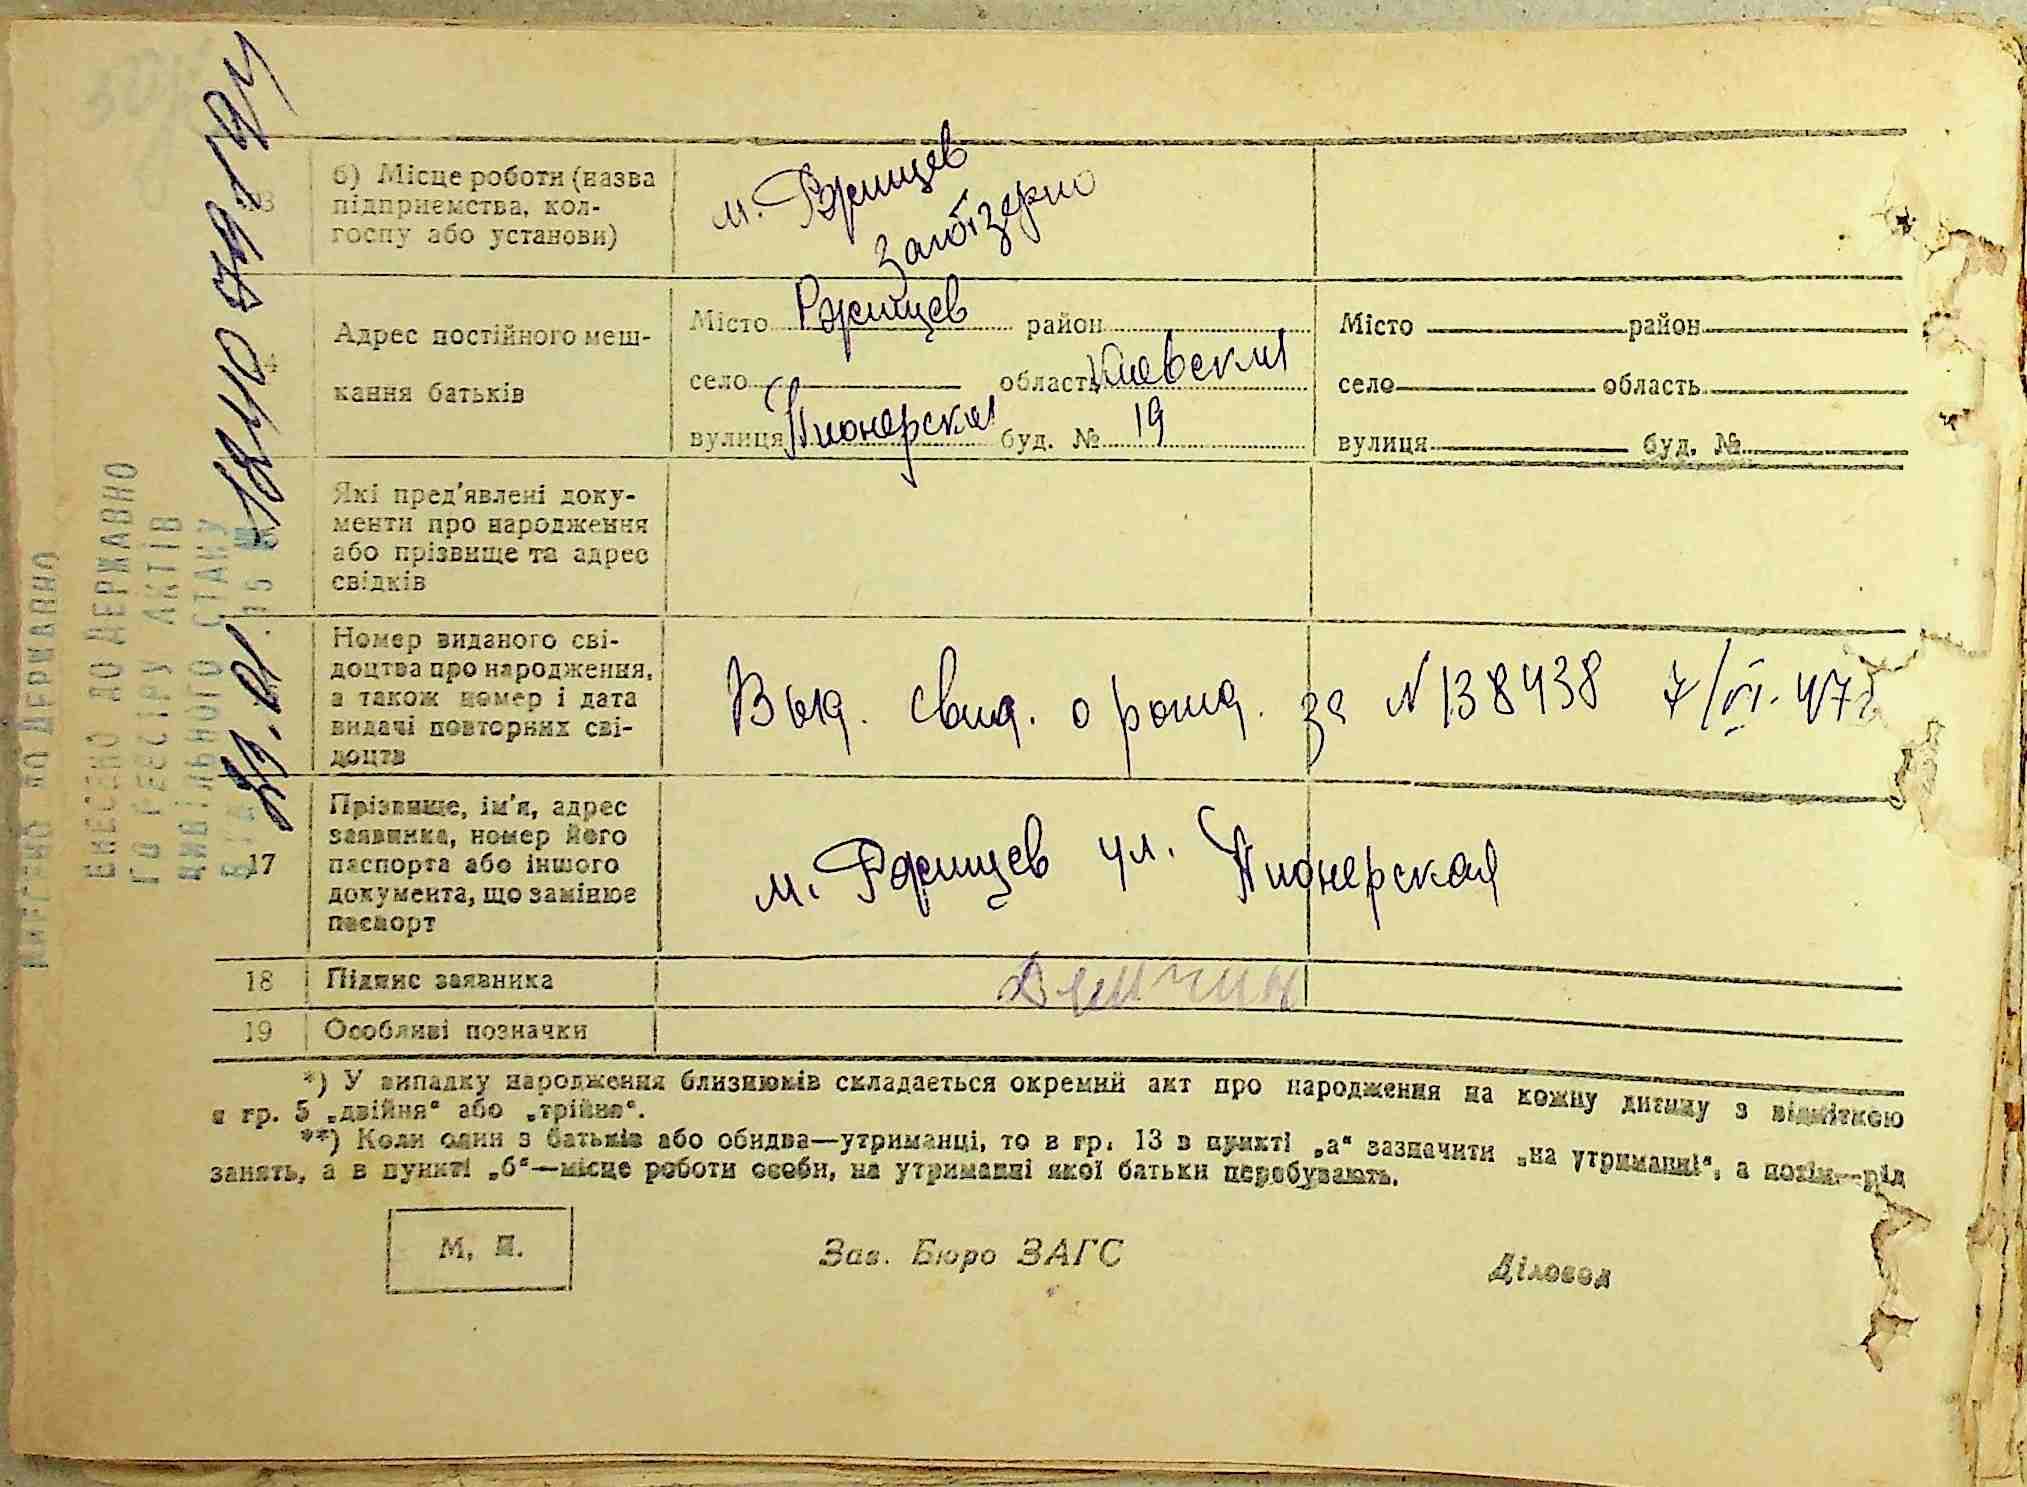 б) Місце роботи (назва
підприємства, кол-
госпу або установи)
м. Ржищев
Заготзерно
Адрес постійного меш-
кання батьків
Місто Ржищев район
село область Киевская
вулиця Пионерская буд. № 19
Місто район
село область
вулиця буд. №
Які пред'явлені доку-
менти про народження
або прізвище та адрес
свідків
Номер виданого сві-
доцтва про народження,
а також номер і дата
видачі повторних сві-
доцтв
Выд. свид. о рожд. за № 138438 7/VI. 47г
17
Прізвище, ім'я, адрес
заявника, номер його
паспорта або іншого
документа, що замінює
паспорт
м. Ржищев ул. Пионерская
18 Підпис заявника
19 Особливі позначки
*) У випадку народження близнюків складається окремий акт про народження на кожну дитину з відміткою
в гр. 5 „двійня“ або „трійня“.
**) Коли один з батьків або обидва—утриманці, то в гр. 13 в пункті „а“ зазначити „на утриманні“, а потім—рід
занять, а в пункті „б“—місце роботи особи, на утриманні якої батьки перебувають.
М. П.
Зав. Бюро ЗАГС
Діловод
ВНЕСЕНО ДО ДЕРЖАВНО
ГО РЕЄСТРУ АКТІВ
ЦИВІЛЬНОГО СТАНУ